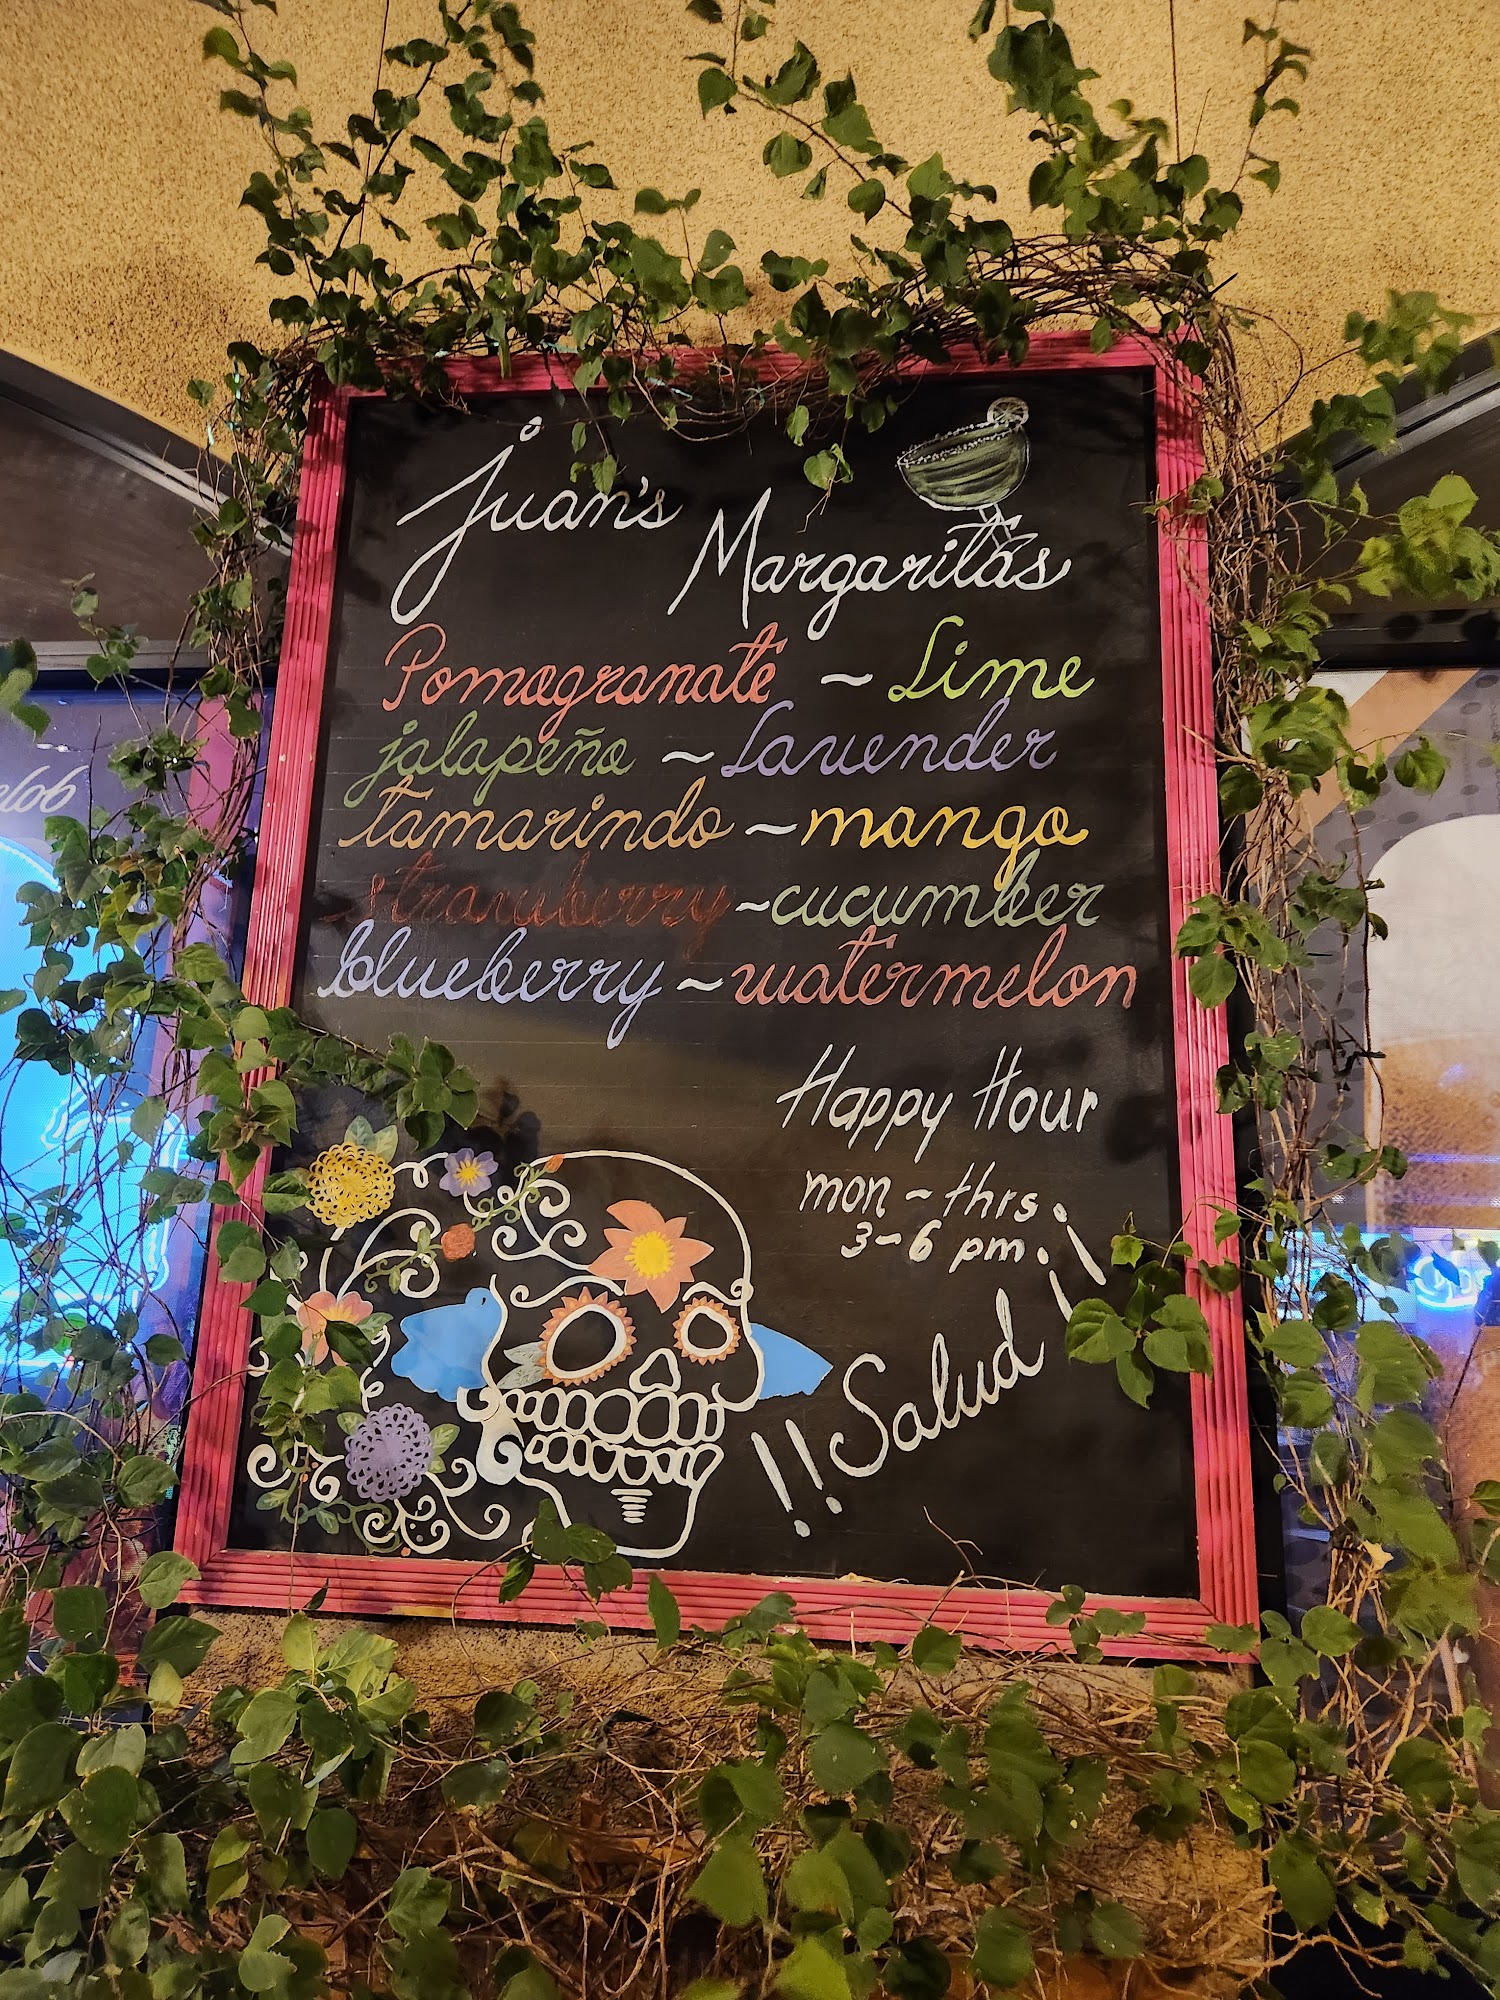 Juan's
Margaritas
Pomegranate ~ Lime
jalapeño ~ Lavender
tamarindo ~ mango
strawberry ~ cucumber
blueberry ~ watermelon
Happy Hour
mon ~ thrs.
3-6 pm.
!!Salud¡¡